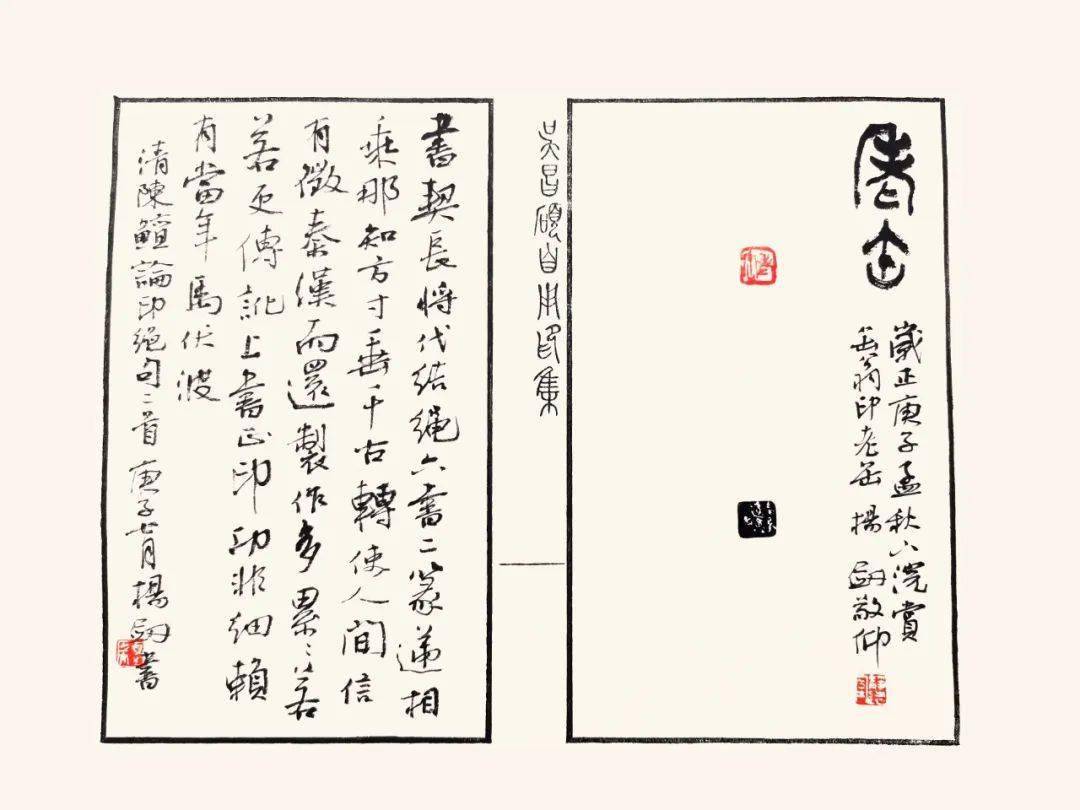 老缶
歲正庚子孟秋浣賞
缶翁印老缶 楊敬仰
吳昌碩自用印集
書契長將代結繩六書二篆遞相
乘那知方寸垂千古轉使人間信
有徵秦漢而還製作多累〻若
若更傳訛上書正印功非細賴
有當年馬伏波
清陳鱣論印絕句二首 庚子七月楊書